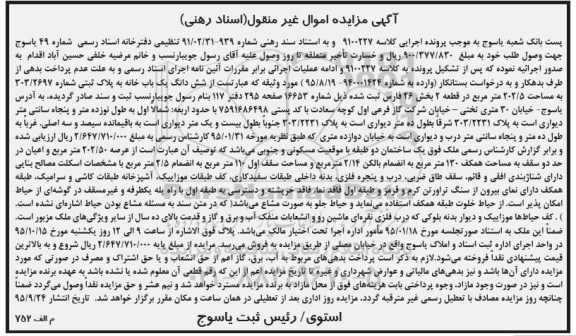 آگهی مزایده اموال غیر منقول(اسناد رهنی)
پست بانک شعبه یاسوج به موجب پرونده اجرایی کلاسه ۹۱۰۰۲۲۷ و به استناد سند رهنی شماره ۹۳۹-۹۱/۰۲/۳۱ تنظیمی دفترخانه اسناد رسمی شماره ۴۹ یاسوج
جهت وصول طلب خود به مبلغ ۹۰۰/۳۷۷/۸۳۰ ریال و خسارت تأخیر متعلقه تا روز وصول علیه آقای رسول جوبیارنسب و خانم مرضیه خلفی حسین آباد اقدام به
صدور اجرائیه نموده که پس از تشکیل پرونده به کلاسه ۹۱۰۰۲۲۷ و ادامه عملیات اجرائی برابر مقررات آئین نامه اجرای اسناد رسمی و به علت عدم پرداخت بدهی از
طرف بدهکار و به درخواست بستانکار
مورد وثیقه که عبارتست از شش دانگ یک باب خانه به پلاک ثبتی شماره ۳۰۳/۲۶۹۷
به مساحت ۲۰۲/۵ متر مربع در قطعه ۲ بخش ۲۶ فارس ثبت شده ذیل شماره ۱۶۶۵۳ صفحه ۲۹۵ دفتر ۱۱۷ بنام رسول جوبیارنسب ثبت و سند صادر گردیده، به آدرس
یاسوج- خیابان ۳۰ متری تختی – خیابان شرکت گاز فرعی اول کوچه سعادت با کد پستی ۷۵۹۱۶۸۶۴۹۸ با حدود اربعه:
دیواری است به پلاک ۳۰۳/۲۲۳۱ شرقا بطول ده متر دیواری است به پلاک ۳۰۳/۲۲۳۱ جنوبا بطول بیست و یک متر دیواری است به باقیمانده سیصد و سه اصلی، غربا به
طول ده متر و پنجاه سانتی متر درب و دیواری است به خیابان دوازده متری که طبق نظریه مورخه ۹۵/۰۱/۳۱ کارشناس رسمی به مبلغ ۲/۶۴۷/۷۱۰/۰۰۰ ریال ارزیابی شده
و برابر گزارش کارشناس رسمی ملک فوق یک ساختمان دو طبقه با موقعیت مسکونی و جنوبی می‌باشد که توصیف آن عبارت است از عرصه ۲۰۲/۵۰ متر مربع و اعیان در
حد دو سقف به مساحت همکف ۱۳۰ متر مربع به انضمام بالکن ۲/۱۴ مترمربع و مساحت سقف اول ۱۷ متر مربع به انضمام ۲/۵ متر مربع با مشخصات اسکلت مصالح بنایی
دارای شناژبندی افقی و قائم، سقف طاق ضربی، درب و پنجره فلزی، بدنه داخلی طبقات سفیدکاری، کف طبقات موزاییک، آشپزخانه طبقات کاشی و سرامیک، طبقه
همکف دارای نمای بیرون از سنگ تراورتن کرم و قرمز و طبقه اول فاقد نما، فاقد خرپشته و دسترسی به طبقه اول با راه پله یکطرفه و غیرمسقف در گوشه‌ای از حیاط
امکان پذیر است. از حیاط خلوت طبقه همکف استفاده می‌نماید و حیاط جلو به صورت مشاع می‌باشد( که در متن سند به مسئله مشاع بودن حیاط اشاره‌ای نشده است.
) . کف حیاط‌ها موزاییک و دیوار بدنه بلوکی که درب فلزی نفره‌ای ماشین رو و انشعابات منفک آب و برق و گاز و قدمت بالای ده سال از سایر ویژگی‌های ملک مزبور است.
ضمناً این ملک به استناد صورتجلسه مورخ ۹۵/۰۱/۱۸ مأمور اداره اجرا تحت اختیار مالک می‌باشد. پلاک فوق الاشاره از ساعت ۹ الی ۱۲ روز یکشنبه مورخ ۹۵/۱۰/۱۵
در واحد اجرای اداره ثبت اسناد و املاک یاسوج واقع در خیابان مصلی از طریق مزایده به فروش می‌رسد. مزایده از مبلغ پایه ۲/۶۴۷/۷۱۰/۰۰۰ ریال شروع و به بالاترین
قیمت پیشنهادی نقدا فروخته می‌شود.لازم به ذکر است پرداخت بدهی‌های مربوط به آب، برق، گاز اعم از حق انشعاب و یا حق اشتراک و مصرف در صورتی که مورد
مزایده دارای آن‌ها باشد و نیز بدهی‌های مالیاتی و عوارض شهرداری و غیره تا تاریخ مزایده اعم از این که رقم قطعی آن معلوم شده یا نشده باشد به عهده برنده مزایده
است و نیز در صورت وجود مازاد، وجوه پرداختی بابت هزینه‌های فوق از محل مازاد به برنده مزایده مسترد خواهد شد و نیم عشر و حق مزایده نقدا وصول می‌گردد ضمناً
چنانچه روز مزایده مصادف با تعطیل رسمی غیر مترقبه گردد، مزایده روز اداری بعد از تعطیلی در همان ساعت و مکان مقرر برگزار خواهد شد. تاریخ انتشار ۹۵/۹/۲۴
استوی/ رئیس ثبت یاسوج
م الف ۷۵۲